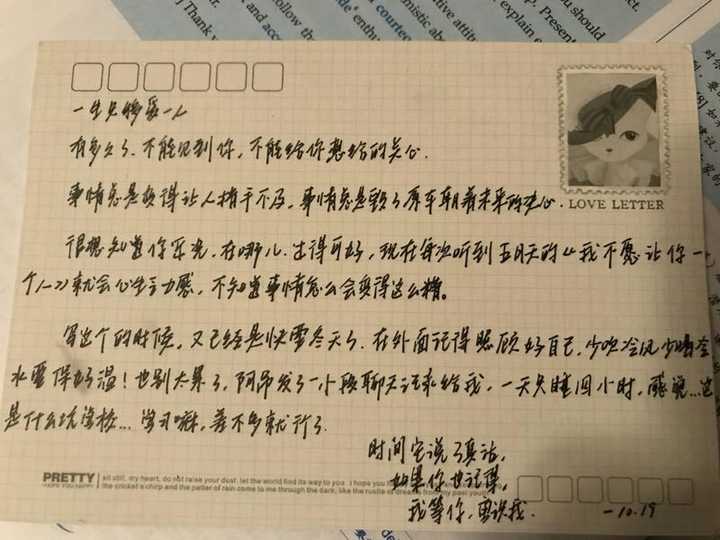 ] Thank y
and acc
follow the
courteo
Present
explain e
should
ct.
一生只够爱一人
有多久了、不能见到你，不能给你想给的关心.
LOVE LETTER
事情总是变得让人措手不及，事情总是毁了原本朝着未来的决心.
很想知道你近况，在哪儿. 过得可好，现在每次听到五月天的《我不愿让你一
个人》就会心生无力感，不知道事情怎么会变得这么糟。
写这个的时候，又已经是快要冬天了、在外面记得照顾好自己，少吹冷风少喝冷
水要保好温！也别太累了，阿昂发了一小段聊天记录给我，一天只睡四小时，这
是什么坑学校... 学习嘛，差不多就行了
时间它说了真话，
如果你也记得，
我等你，
PRETTY
sit still, my heart, do not raise your dust. let the world find its way to you. I hope you
the cricket's chirp and the patter of rain come to me through the dark, like the rustle of dreams from my past youth
-10.19